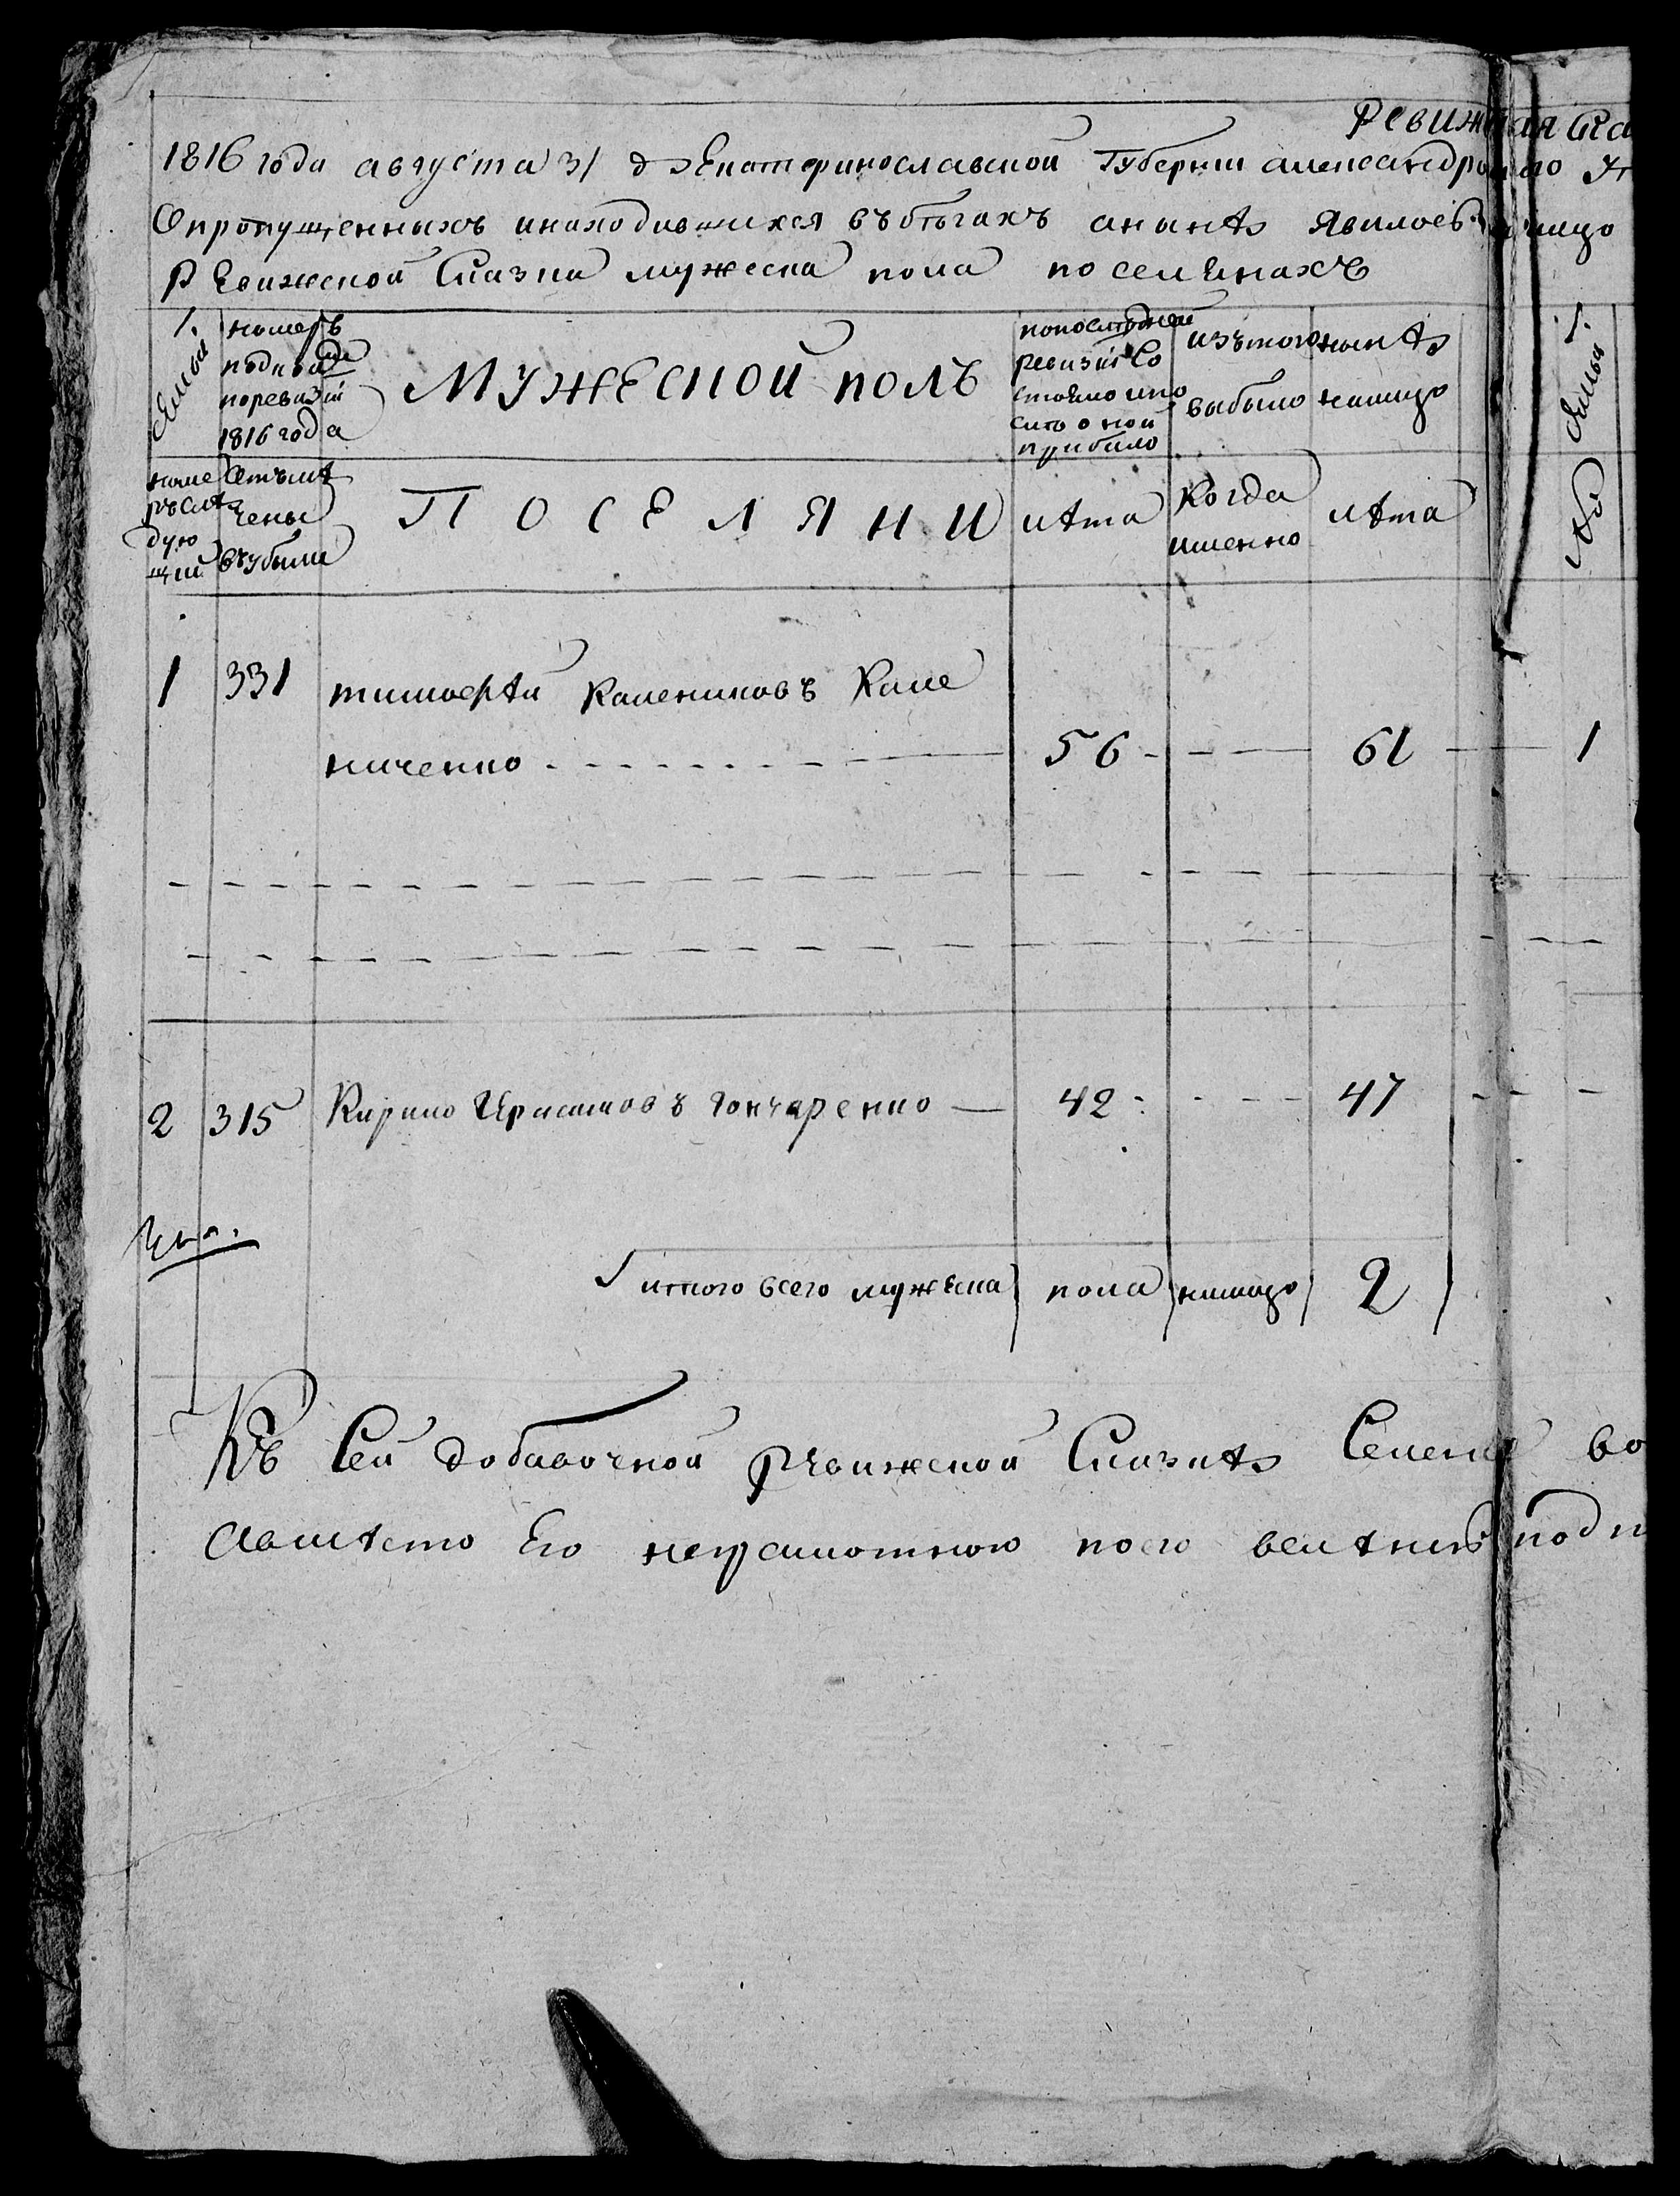 Ревижская ска
1816 года августа 31 д Екатеринославской Губернии александровского
О пропущенныхъ и находившихся въ бѣгахъ а нынѣ явилось налицо
Ревижской Сказка мужеска пола поселянахъ
1. семьи
номеръ подава поревизіи 1816 года
Мужеской полъ
попоследней ревизіи состояло ипо сить оной прибыло
изътого выбыло
нынѣ налицо
1. семьи
П О С Е Л Я Н И
лѣта
Когда именно
лѣта
1 331 тимофѣй Калениковъ Кале
ниченко 56 61 1
2 315 Кирило Герасимовъ Гончаренко 42 47
итого всего мужеска пола налицо 2
Къ Сей добавочной ревижской Сказкѣ во
а вмѣсто Его неграмотного по его велѣнию подп